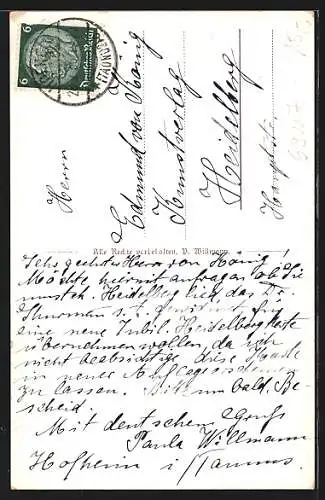 6 Deutsches Reich 6
(TAUNUS)
Herrn
Edmund von König
Kunstverlag
Heidelberg
Hauptstr.
Alle Rechte vorbehalten, P. Willmann
Sehr geehrter Herr von König!
Möchte hiermit anfragen ob Sie
Heidelberg lied, das Dr.
s. Zt.
eine neue Jubil. Heidelberg Karte
übernehmen wollen, da ich
nicht beabsichtige diese Karte
in neuer Auflage erscheinen
zu lassen. Bitte um bald. Be-
scheid.
Mit deutschem Gruß
Paula Willmann
Hofheim i/Taunus.